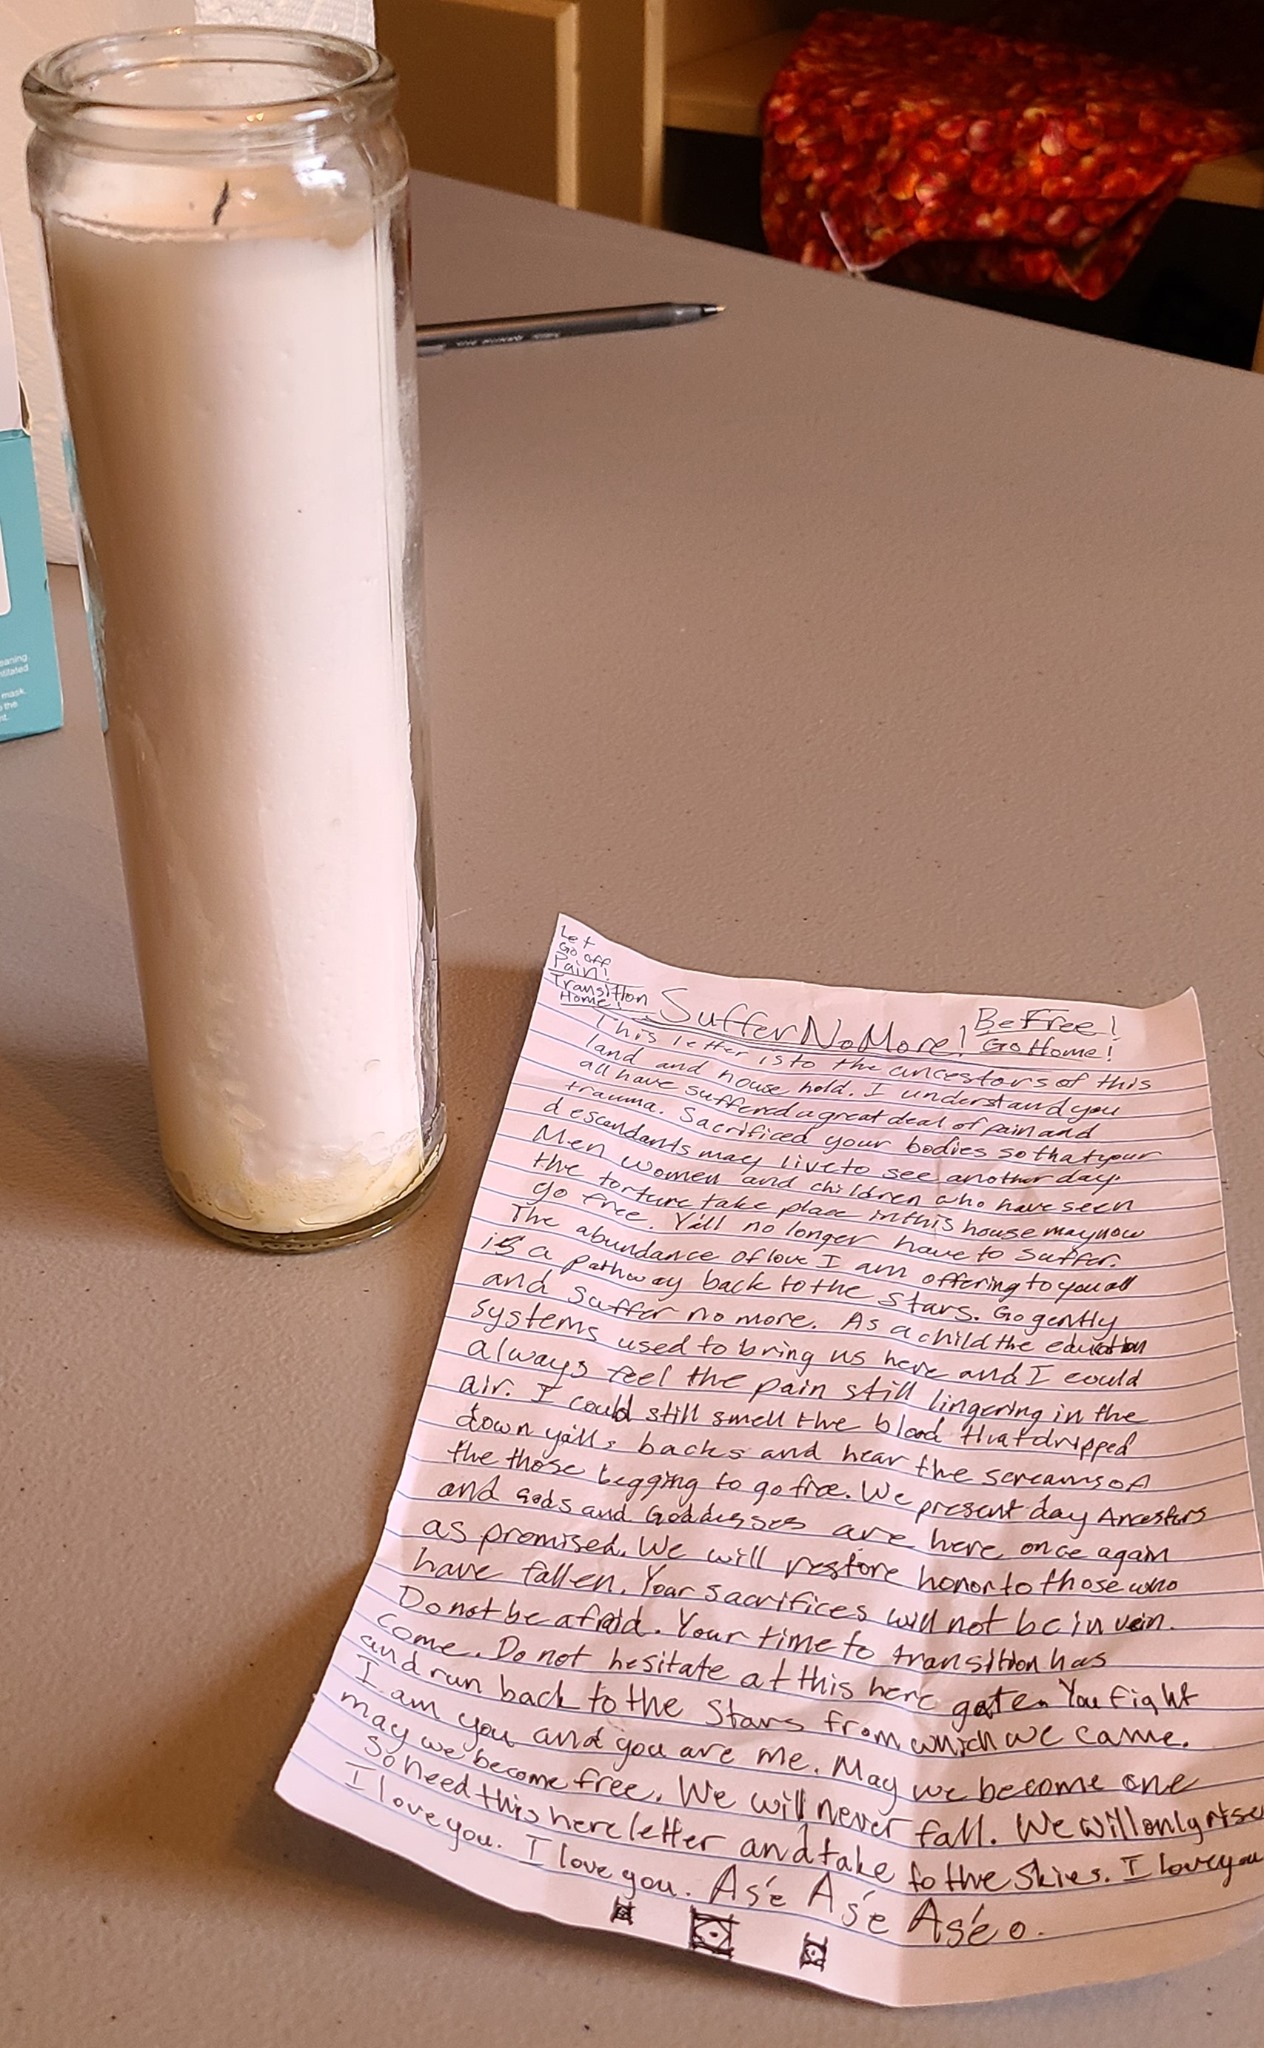 Let
Go off
Pain!
Transition
Home!
Suffer No More!
Be Free!
Go Home!
This letter is to the ancestors of this
land and house hold. I understand you
all have suffered a great deal of pain and
trauma. Sacrificed your bodies so that your
descendants may live to see another day.
Men women and children who have seen
the torture take place in this house may now
go free. Y'all no longer have to suffer.
The abundance of love I am offering to you all
is a pathway back to the stars. Go gently
and suffer no more. As a child the education
systems used to bring us here and I could
always feel the pain still lingering in the
air. I could still smell the blood that dripped
down yalls backs and hear the screams of
the those begging to go free. We present day Ancestors
and Gods and Goddesses are here once again
as promised. We will restore honor to those who
have fallen. Your sacrifices will not be in vein.
Do not be afraid. Your time to transition has
come. Do not hesitate at this here gate. You fight
and run back to the Stars from which we came.
I am you and you are me. May we become one
may we become free. We will never fall. We will only rise
So heed this here letter and take to the skies. I love you
I love you. I love you. Asé Asé Asé o.
eaning
mask.
the
nt.